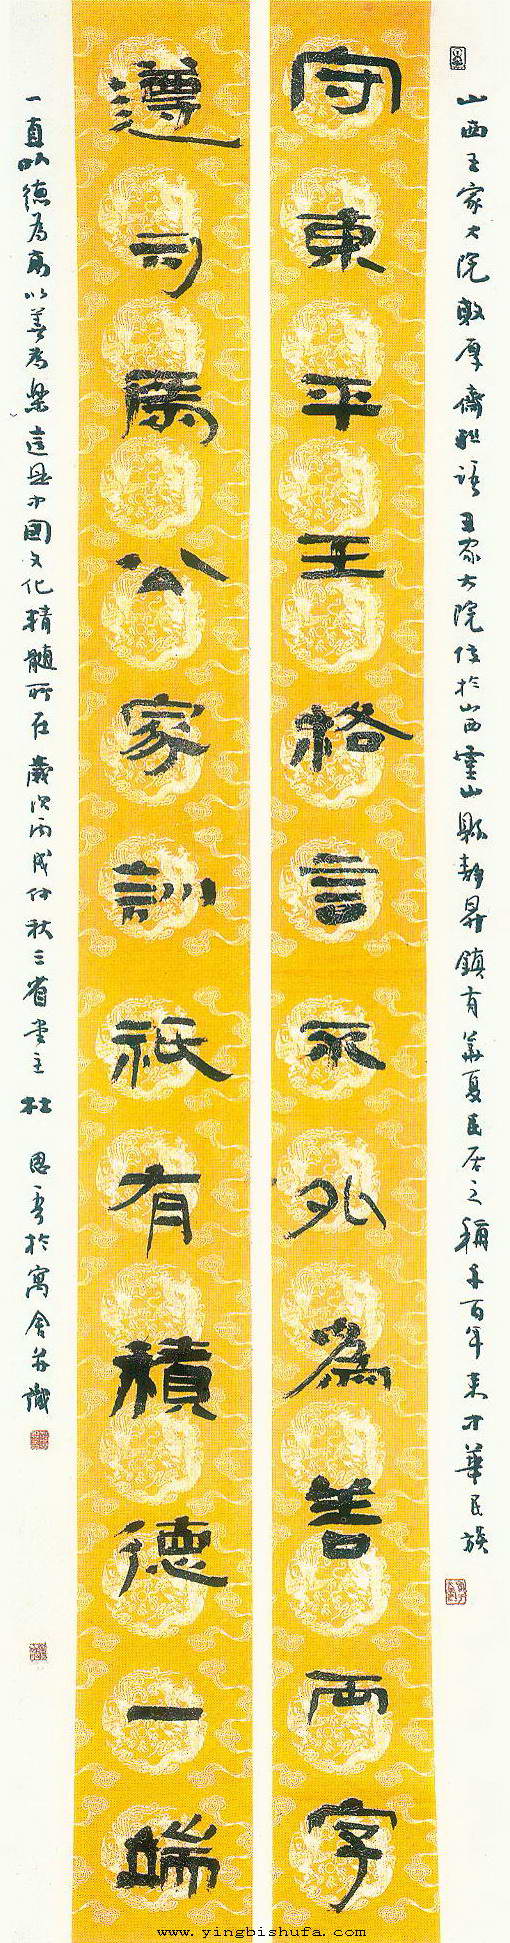 山西王家大院敦厚齋联语王家大院位於山西靈山縣静昇鎮有華夏民居之稱千百年来中華民族
守東平王格言不外為善兩字
遵司馬公家訓祇有積德一端
一直以德為高以善為樂這是中國文化精髓所在歲次丙戌仲秋三省堂主杜思於寓舍并識
www.yingbishufa.com